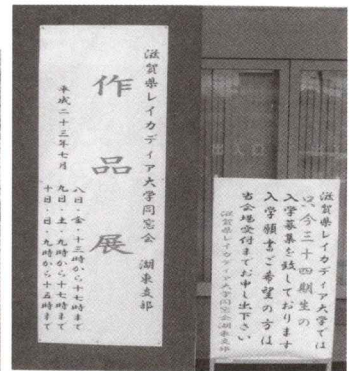 滋賀県レイカディア大学同窓会 湖東支部
作品展
平成二十三年七月
八日・金・十三時から十七時まで
九日・土・九時から十七時まで
十日・日・九時から十五時まで
滋賀県レイカディア大学では
只今三十四期生の
入学募集を致しております
入学願書ご希望の方は
当会場受付までお申し出下さい
滋賀県レイカディア大学同窓会湖東支部